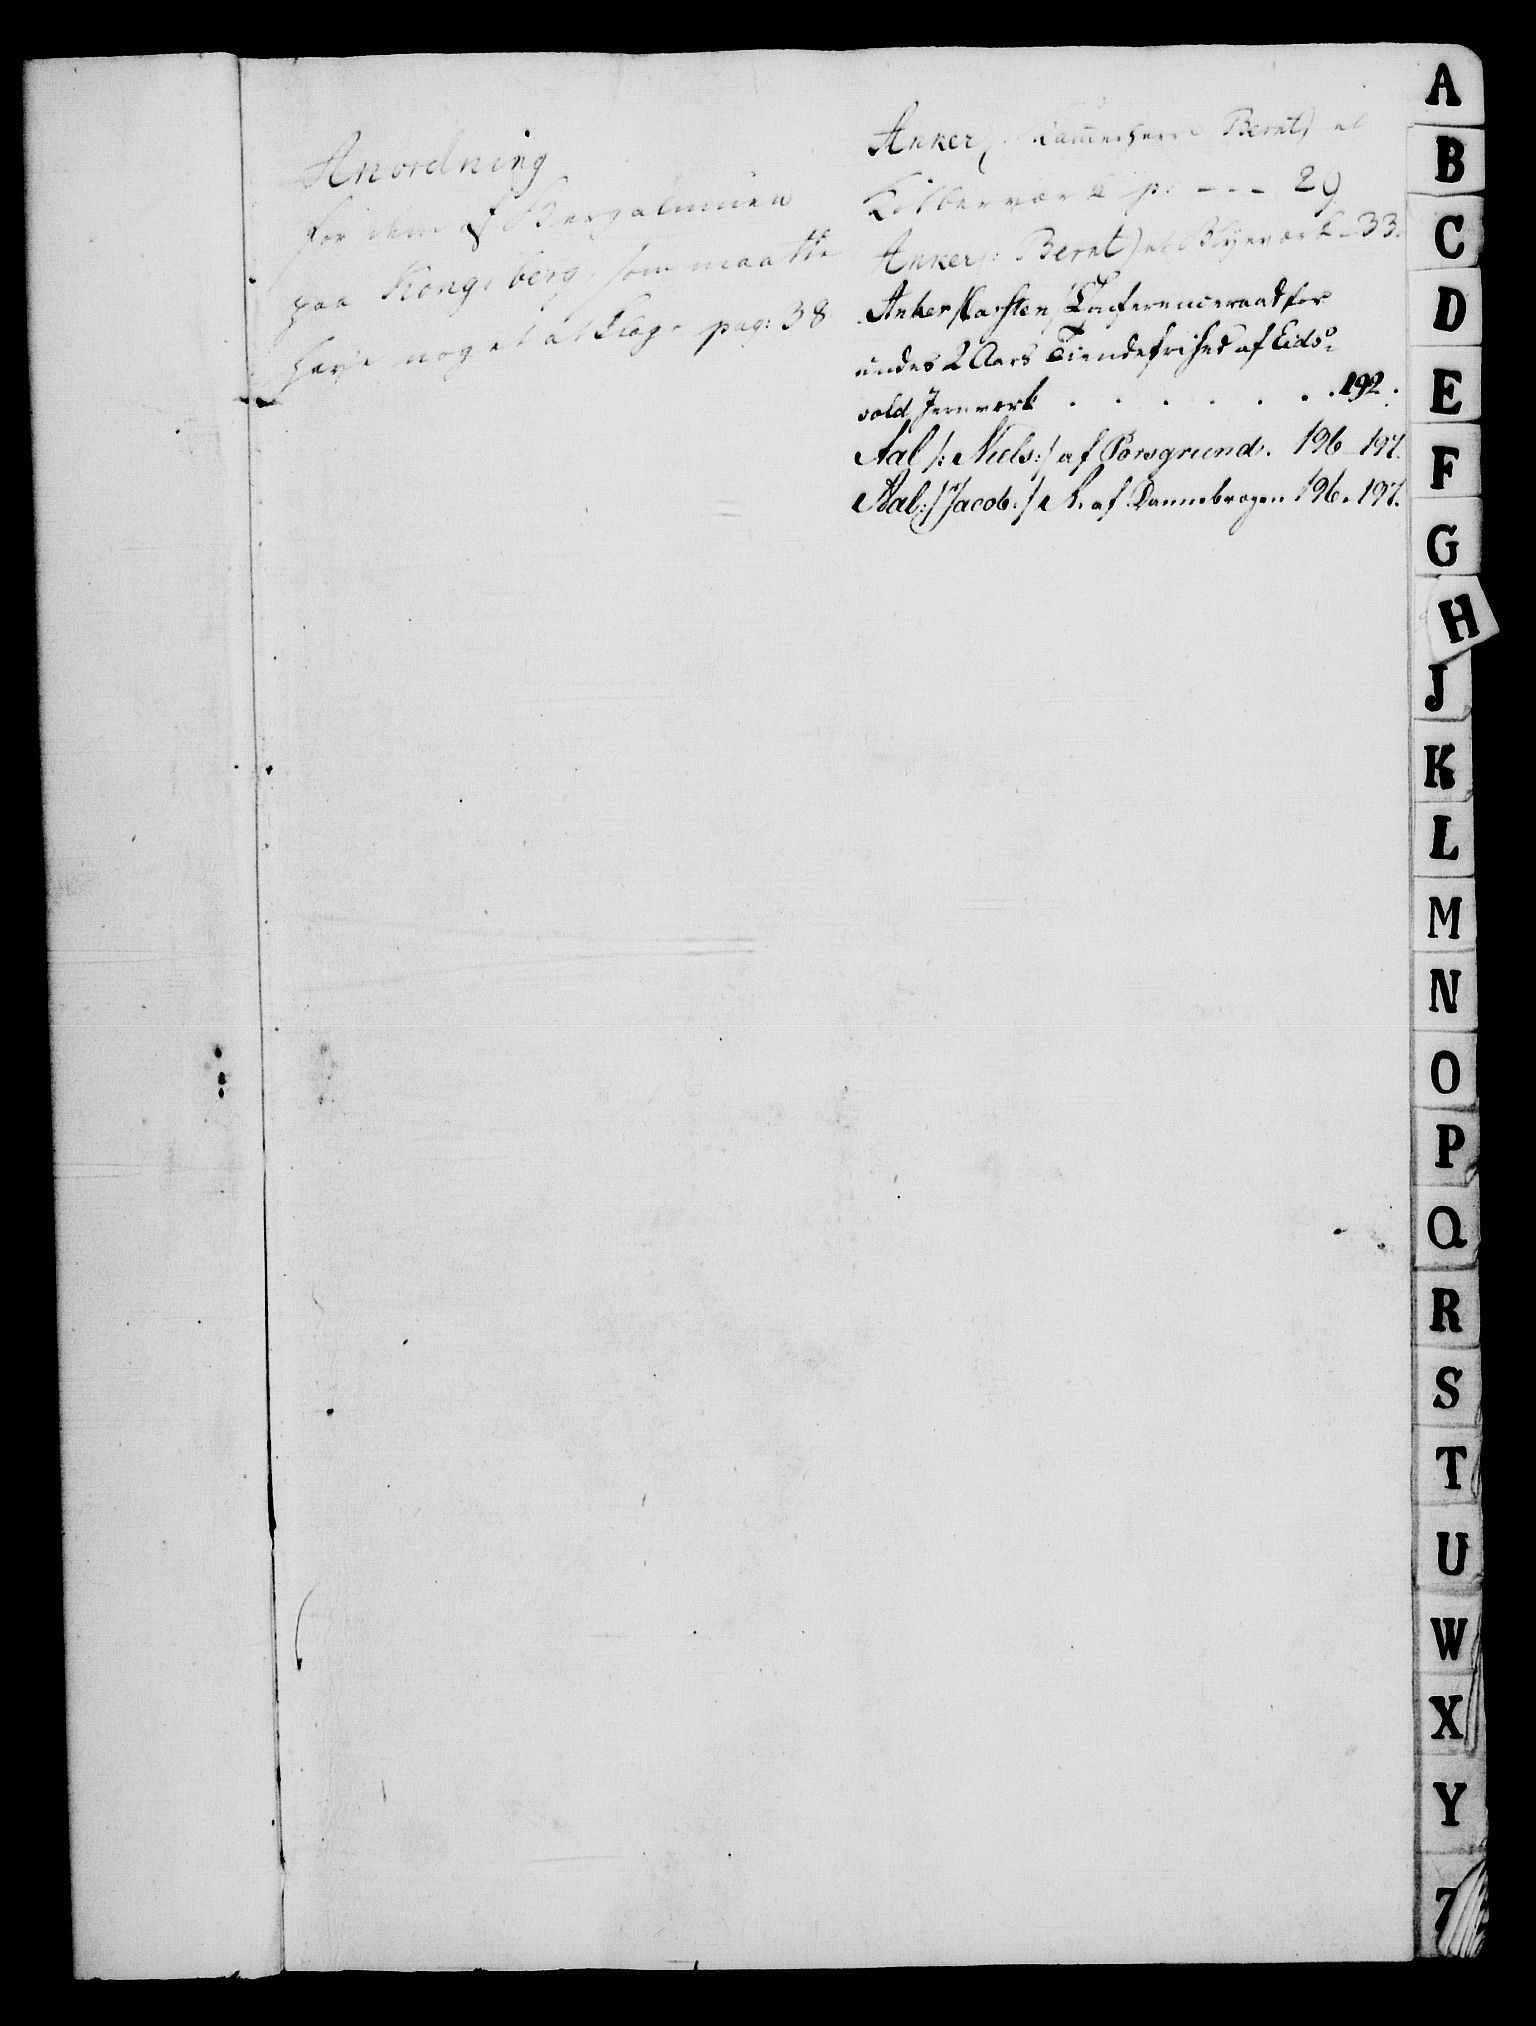 Anordning
for dem af Bergalmuen
paa Kongsberg, som maatte
have noget at klage pag: 38
Anker (: Kammerherre Bernt) et
Kobberværk p: --- 29
Anker (: Bernt) et Blyeværk - 33.
Anker /Karsten/ Conferenceraad for
undes 2 Aars Tiendefrihed af Eids-
vold Jernverk . . . . . . . 192.
Aal /: Niels :/ af Porsgrund. 196-197.
Aal :/ Jacob :/ R. af Dannebrogen 196. 197.
A
B
C
D
E
F
G
H
J
K
L
M
N
O
P
Q
R
S
T
U
W
X
Y
Z